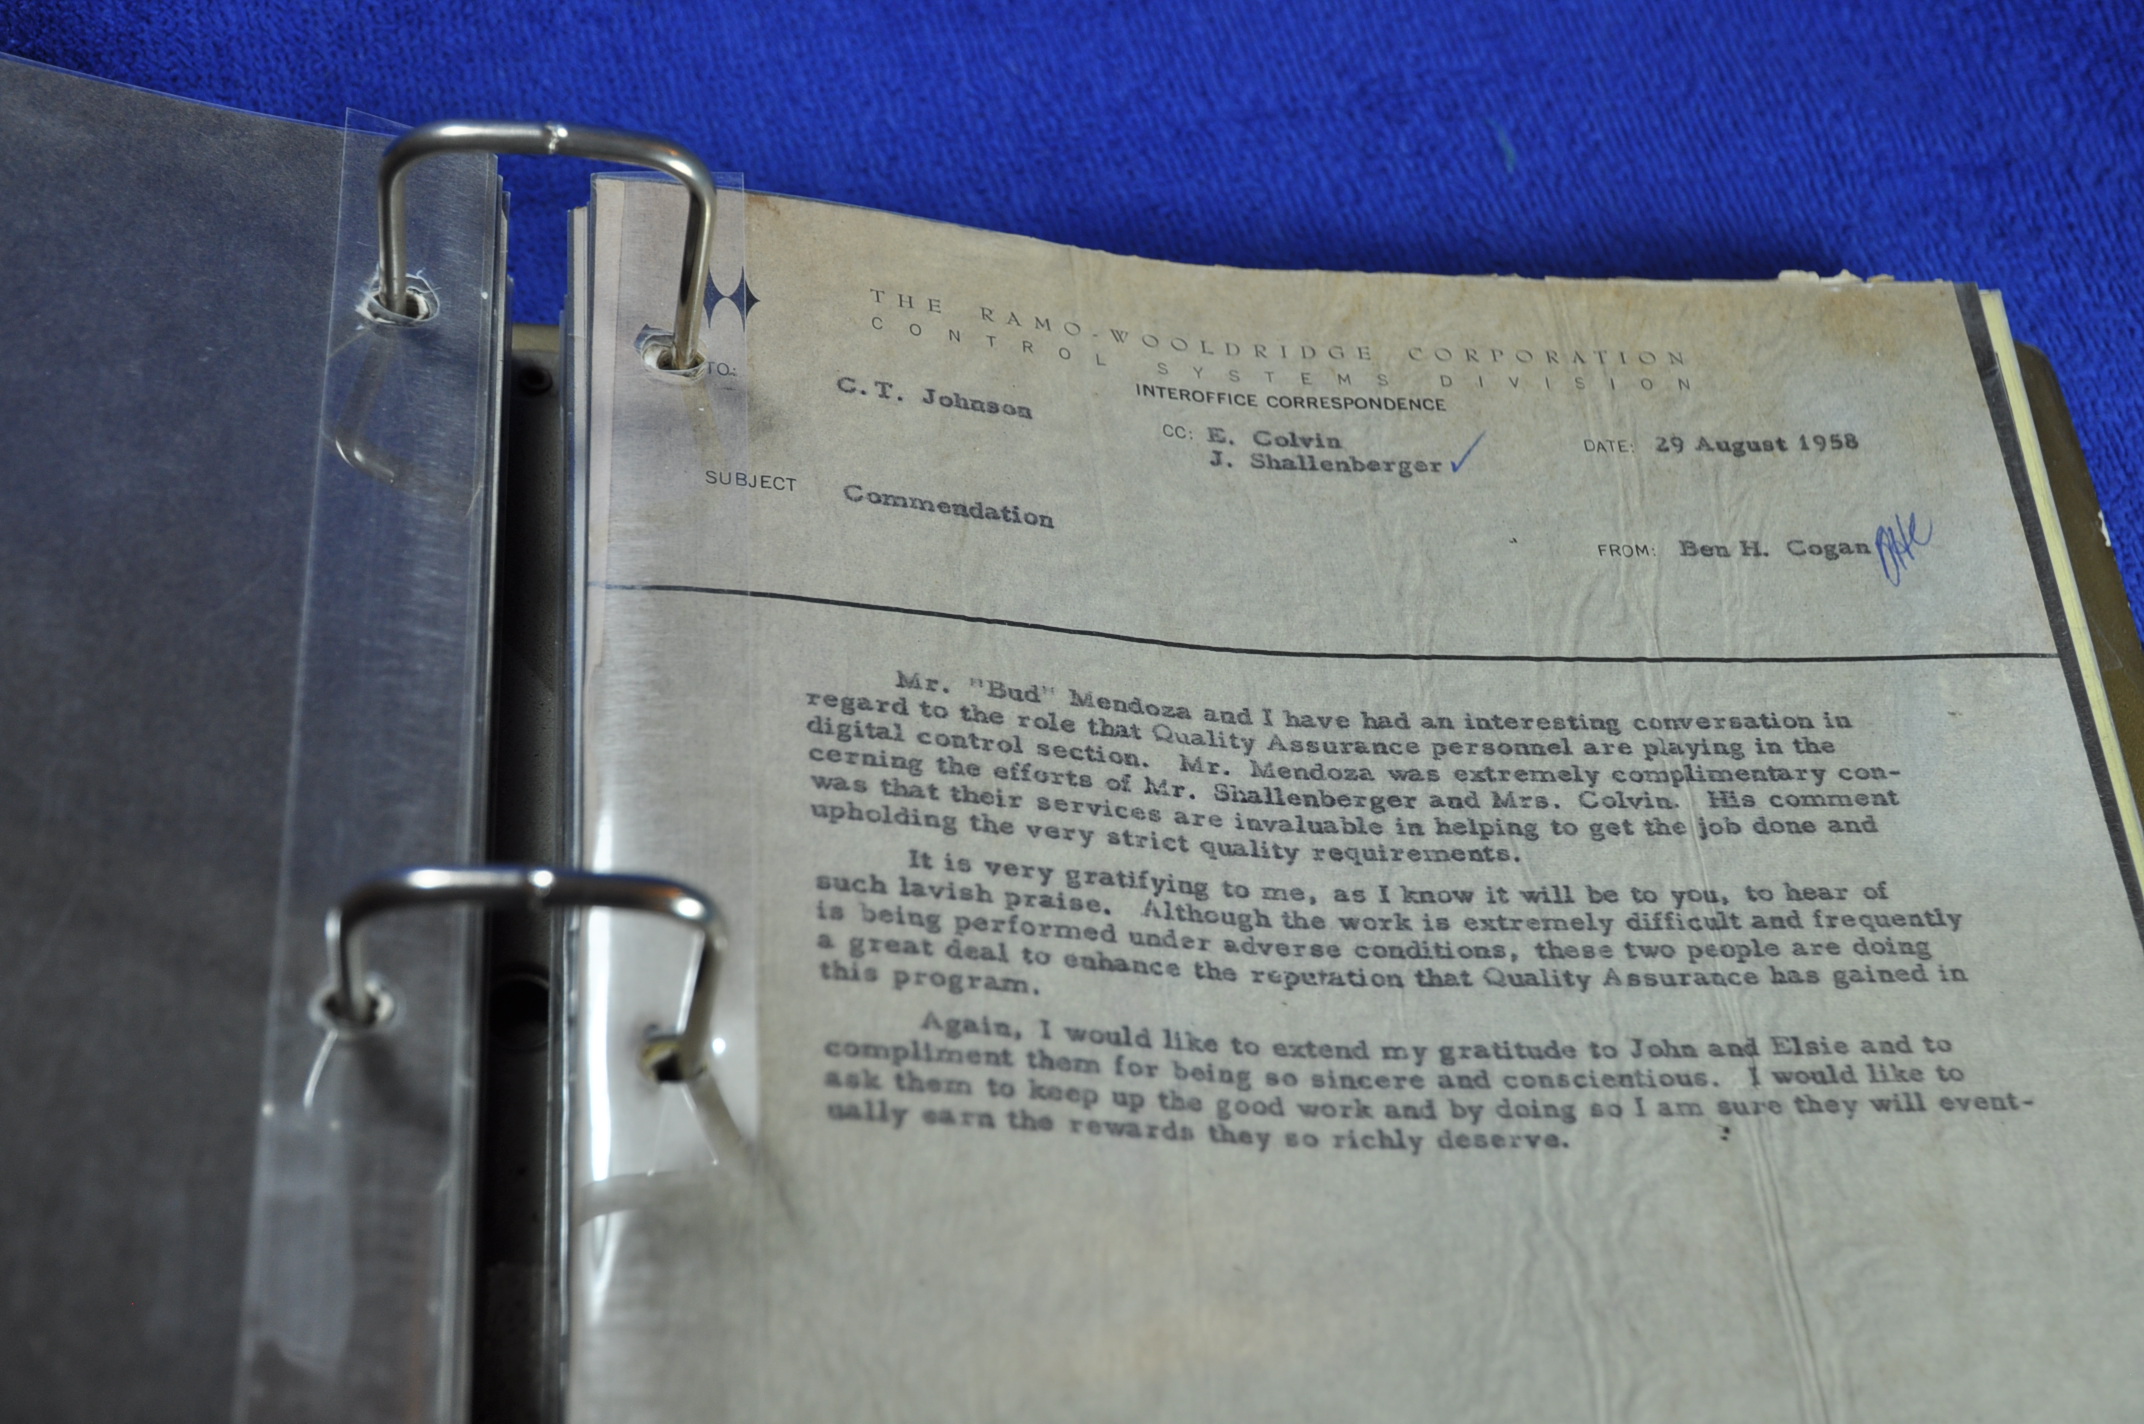 THE RAMO-WOOLDRIDGE CORPORATION
CONTROL SYSTEMS DIVISION
INTEROFFICE CORRESPONDENCE
TO:
C. T. Johnson
CC: E. Colvin
J. Shallenberger
DATE: 29 August 1958
SUBJECT
Commendation
FROM: Ben H. Cogan
Mr. "Bud" Mendoza and I have had an interesting conversation in
regard to the role that Quality Assurance personnel are playing in the
digital control section. Mr. Mendoza was extremely complimentary con-
cerning the efforts of Mr. Shallenberger and Mrs. Colvin. His comment
was that their services are invaluable in helping to get the job done and
upholding the very strict quality requirements.
It is very gratifying to me, as I know it will be to you, to hear of
such lavish praise. Although the work is extremely difficult and frequently
is being performed under adverse conditions, these two people are doing
a great deal to enhance the reputation that Quality Assurance has gained in
this program.
Again, I would like to extend my gratitude to John and Elsie and to
compliment them for being so sincere and conscientious. I would like to
ask them to keep up the good work and by doing so I am sure they will event-
ually earn the rewards they so richly deserve.